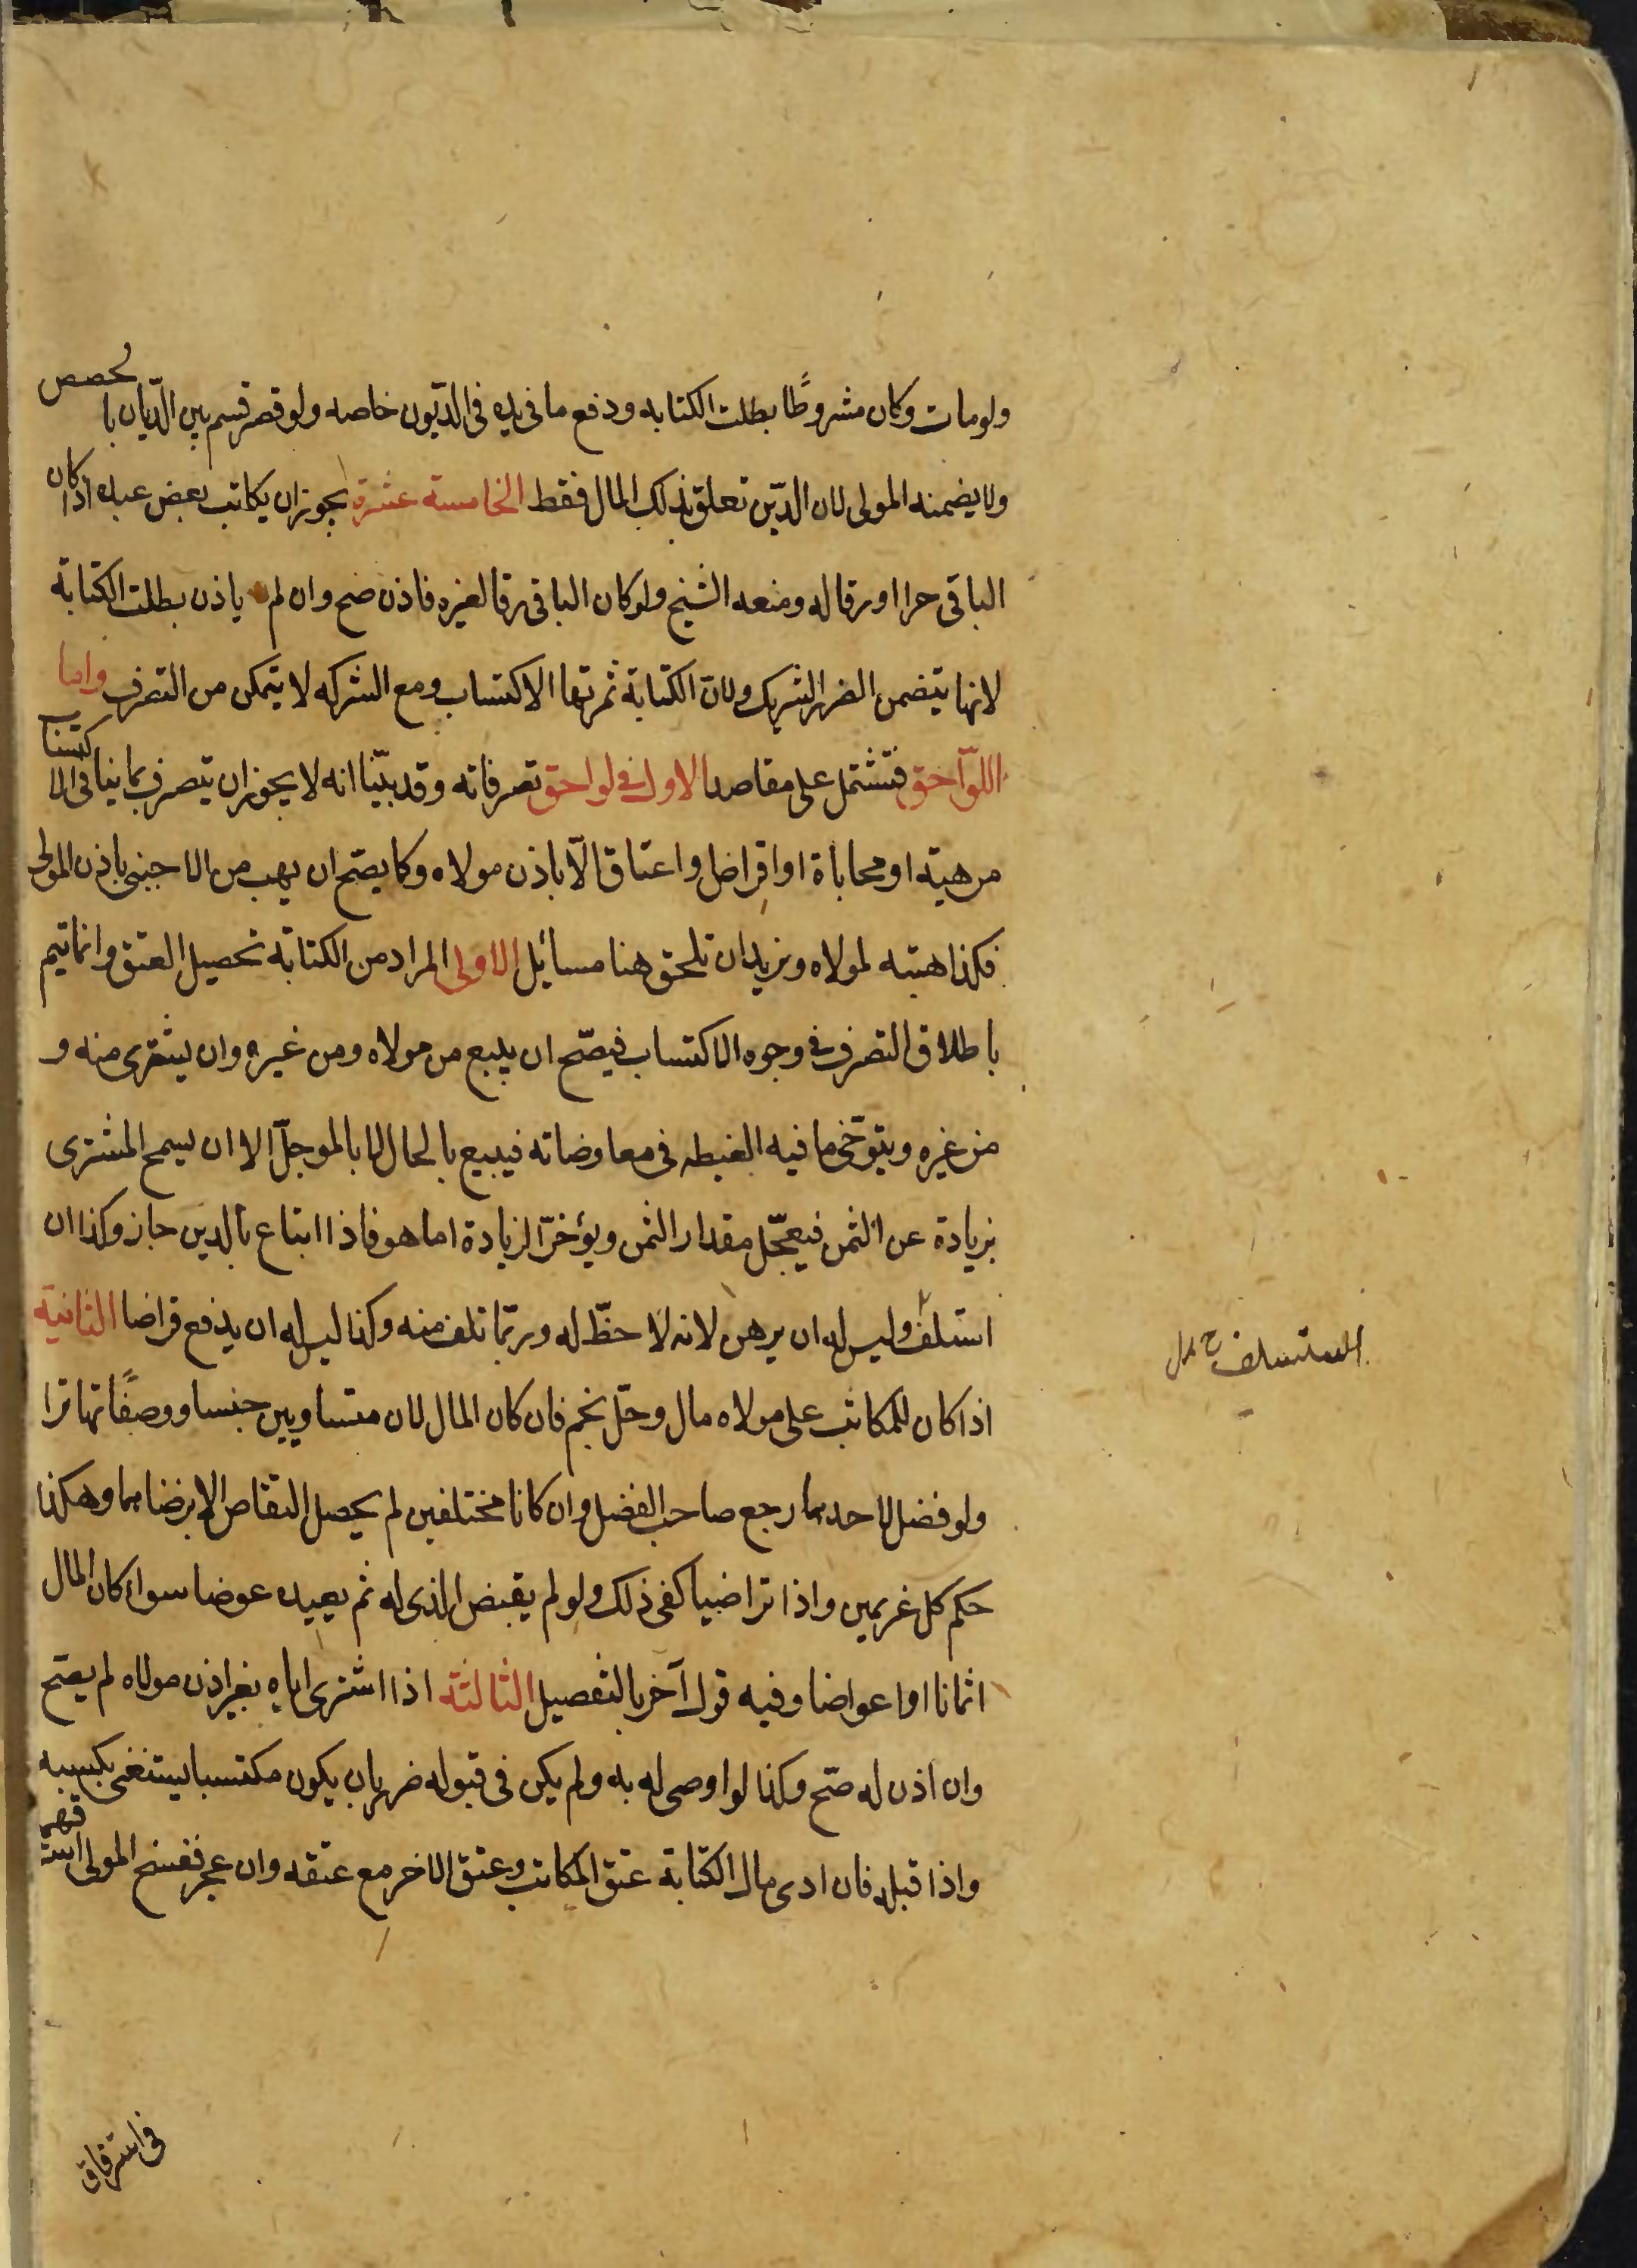 ولو مات وكان مشروطًا بطلت الكتابه ودفع ما فى يده فى الديّون خاصه ولو قصر قسم بين الدّيان بالحصص
ولا يضمنه المولى لان الدّين تعلق بذلك المال فقط الخامسته عشرة يجوز ان يكاتب بعض عبده اذا كان
الباقى حرا او رقا له ومنعه الشيخ ولو كان الباقى رقا لغيره فاذن صح وان لم ياذن بطلت الكتابة
لانها يتضمن الضرر الشريك ولان الكتابة ثمرتها الاكتساب ومع الشركه لا يتمكن من التصرف واما
اللوآحق فتشتمل على مقاصد الاول فى لواحق تصرفاته وقد بيّنا انه لا يجوز ان يتصرف بما ينافى الاكتساب
من هبته او محاباة او اقراض واعتاق الّا باذن مولاه وكما يصّح ان يهب من الاجنبى باذن المولى
فكذا هبته لمولاه ونريد ان نلحق هنا مسائل الاولى المراد من الكتابة تحصيل العتق وانما يتم
باطلاق التصرف فى وجوه الاكتساب فيصّح ان يبيع من مولاه ومن غيره وان يشترى منه و
من غيره ويتوّخى ما فيه الغبطه فى معاوضاته فيبيع بالحال لا بالموجلّ الا ان يسمح المشترى
بزيادة عن الثمن فيعجّل مقدار الثمن ويؤخرّ الزيادة اما هو فاذا ابتاع بالدين جاز وكذا ان
استلف وليس له ان يرهن لانه لا حظّ له وربمّا تلف منه وكذا ليس له ان يدفع قراضا الثانيه
المستسلف ح ل
اذا كان للمكاتب على مولاه مال وحلّ نجم فان كان المالان متساويين جنسا ووصفًا تهاترا
ولو فضل لاحدهما رجع صاحب الفضل وان كانا مختلفين لم يحصل التقاص الا برضاهما وهكذا
حكم كل غريمين واذا تراضيا كفى ذلك ولو لم يقبض الذى له ثم يعيده عوضا سواء كان المال
اثمانا او اعواضا وفيه قول آخر بالتفصيل الثالثة اذا اشترى اباه بغير اذن مولاه لم يصّح
وان اذن له صّح وكذا لو اوصى له به ولم يكن فى قبوله ضرر بان يكون مكتسبا يستغنى بكسبه
واذا قبله فان ادى مال الكتابة عتق المكاتب وعتق الاخر مع عتقه وان عجز ففسخ المولى استرقهما
فى استرقاق